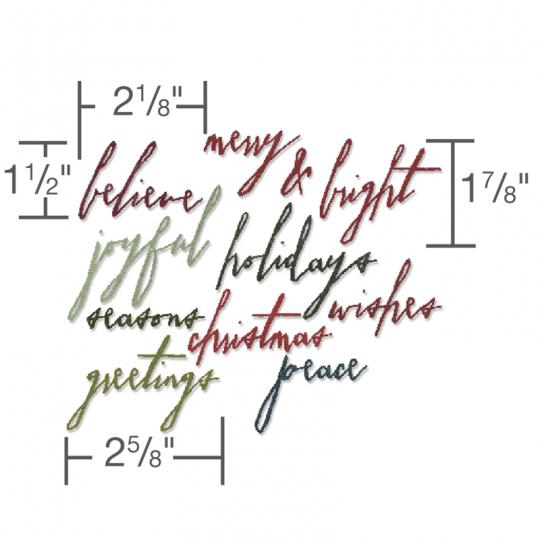 2 1/8"
merry
1 1/2"
believe
&
bright
1 7/8"
joyful
holidays
seasons
christmas
wishes
greetings
peace
2 5/8"